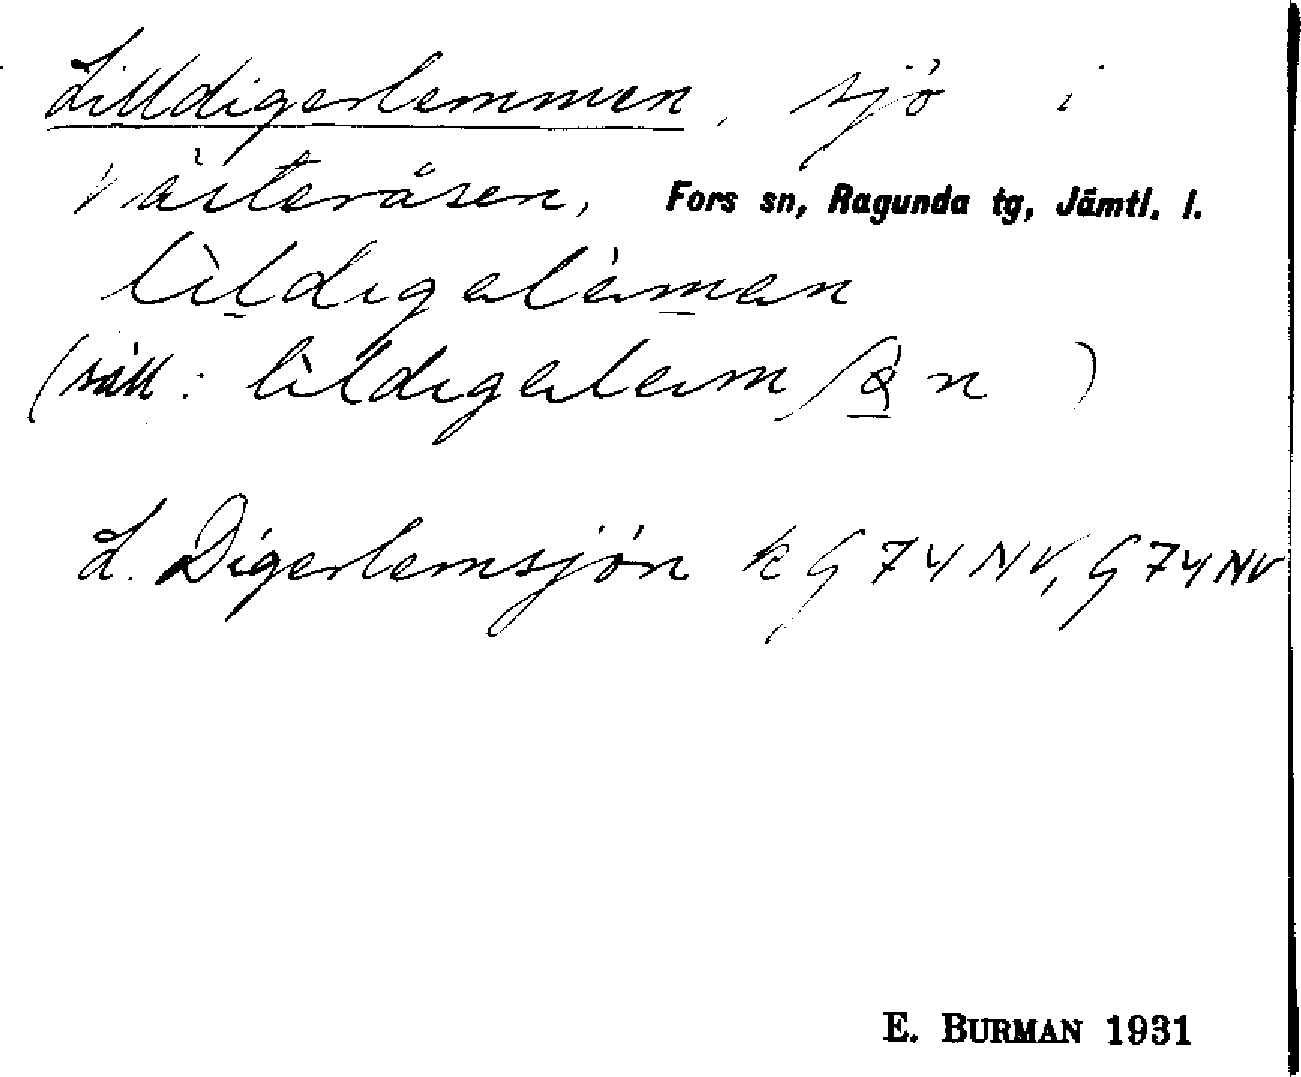 Lilldigerlemmen, sjö i
Västeråsen, Fors sn, Ragunda tg, Jämtl. l.
lìldıgalèman
(säll: lìldıgaleımʃön)
L. Digerlemsjön k G 74 NV, G 74 NV
E. BURMAN 1931